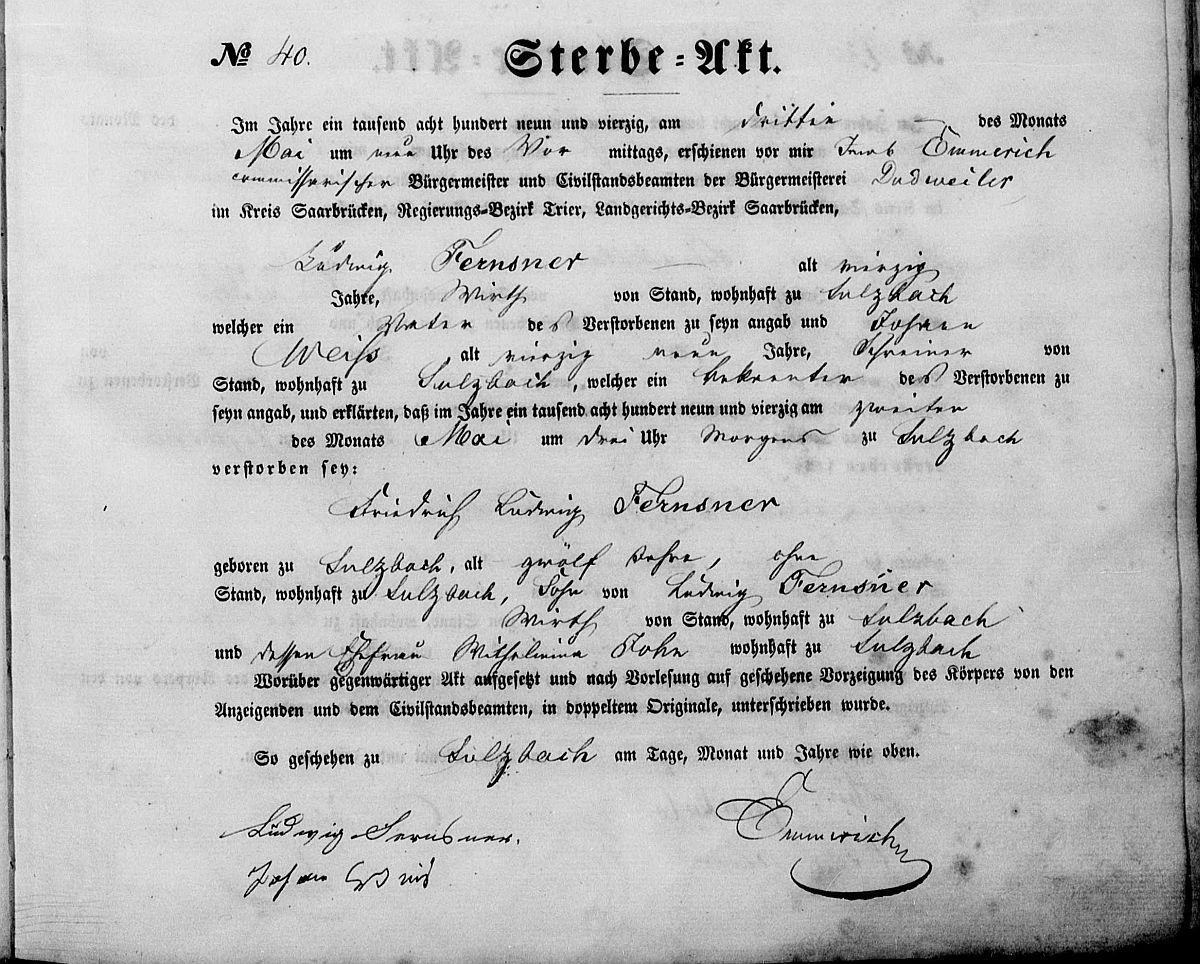 № 40. Sterbe-Akt.
Im Jahre ein tausend acht hundert neun und vierzig, am dritten des Monats
Mai um neun Uhr des Vor mittags, erschienen vor mir Jacob Emmerich
commissarischer Bürgermeister und Civilstandsbeamten der Bürgermeisterei Dudweiler
im Kreis Saarbrücken, Regierungs-Bezirk Trier, Landgerichts-Bezirk Saarbrücken,
Ludwig Fernsner alt vierzig
Jahre, Wirth von Stand, wohnhaft zu Sulzbach
welcher ein Vater des Verstorbenen zu seyn angab und Johann
Weiss, alt vierzig neun Jahre, Schreiner von
Stand, wohnhaft zu Sulzbach, welcher ein bekannter des Verstorbenen zu
seyn angab, und erklärten, daß im Jahre ein tausend acht hundert neun und vierzig am zweiten
des Monats Mai um drei Uhr Morgens zu Sulzbach
verstorben sey:
Friedrich Ludwig Fernsner
geboren zu Sulzbach, alt zwölf Jahre, ohne
Stand, wohnhaft zu Sulzbach, Sohn von Ludwig Fernsner
Wirth von Stand, wohnhaft zu Sulzbach
und dessen Ehefrau Wilhelmina wohnhaft zu Sulzbach
Worüber gegenwärtiger Akt aufgesetzt und nach Vorlesung auf geschehene Vorzeigung des Körpers von den
Anzeigenden und dem Civilstandsbeamten, in doppeltem Originale, unterschrieben wurde.
So geschehen zu Sulzbach am Tage, Monat und Jahre wie oben.
Ludwig Fernsner. Emmerich
Johann Weis